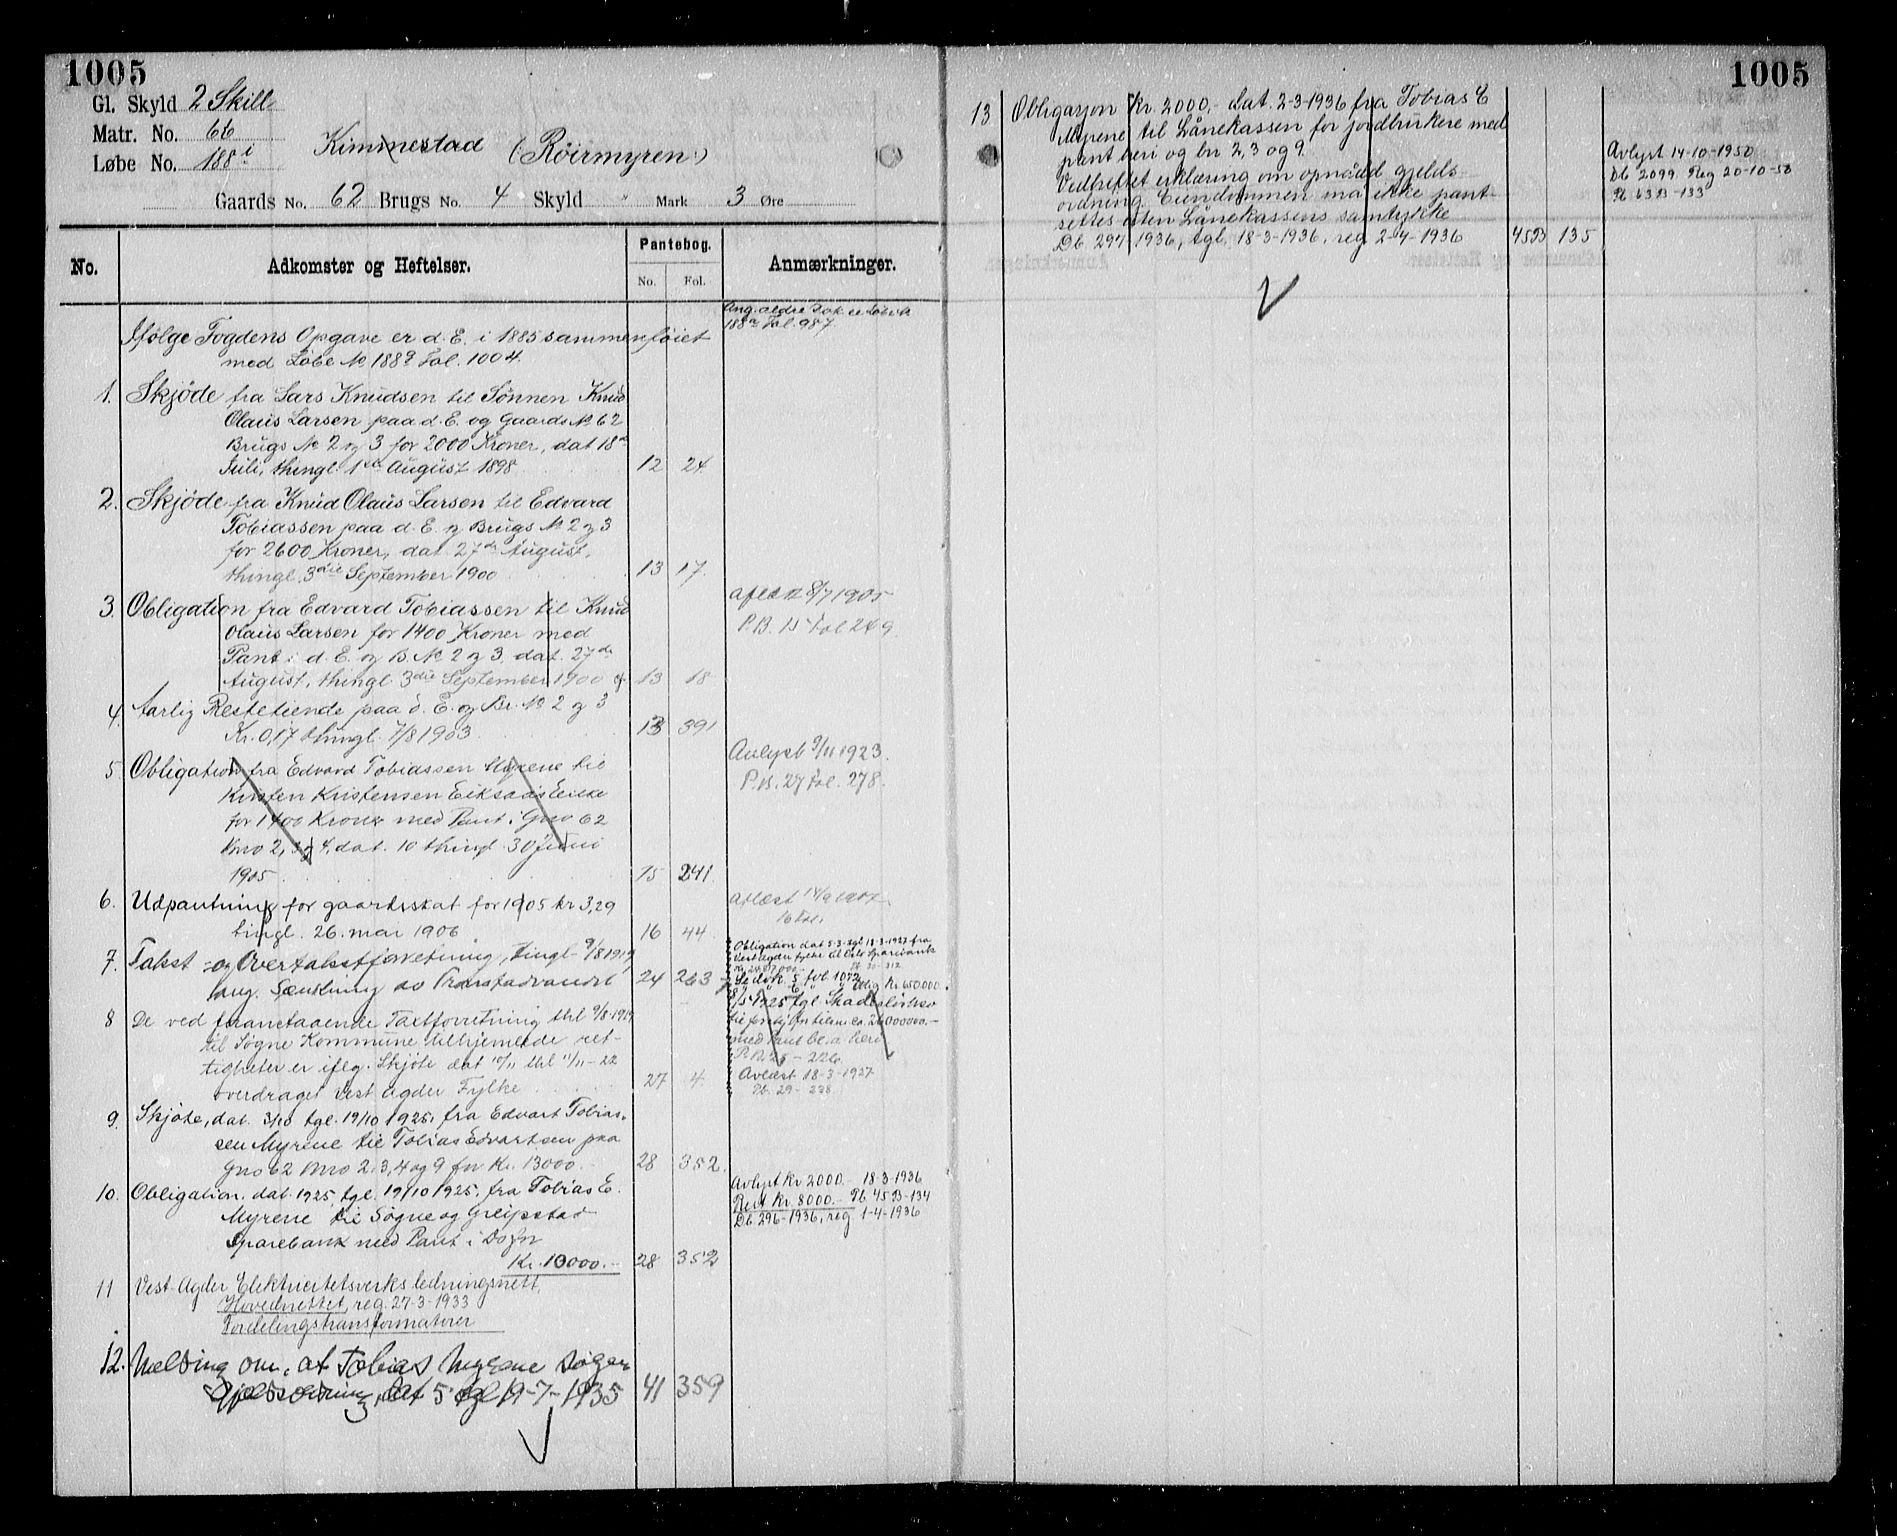 1005
Gl. Skyld 2 Skill
Matr. No. 66
Løbe No. 188 i
Kimmestad (Röirmyren)
Gaards No. 62 Brugs No. 4 Skyld " Mark 3 Øre
No.
Adkomster og Heftelser.
Pantebog.
No. Fol.
Anmærkninger.
Ang. ældre Dok se Løbe №
188a Fol. 987
Ifølge Fogdens Opgave er d. E. i 1885 sammenføiet
med Løbe № 188g Fol. 1004.
1. Skjøde fra Lars Knudsen til Sønnen Knud
Olaus Larsen paa d. E. og Gaards № 62
Brugs № 2 og 3 for 2000 Kroner, dat 18de
Juli, thingl. 1ste August 1898 12 24
2. Skjøde fra Knud Olaus Larsen til Edvard
Tobiassen paa d. E. og Brugs № 2 og 3
for 2600 Kroner, dat. 27de August,
thingl. 3die September 1900 13 17.
3. Obligation fra Edvard Tobiassen til Knud
Olaus Larsen for 1400 Kroner med
Pant i d. E. og B. № 2 og 3, dat. 27de
August, thingl. 3die September 1900 13 18
aflæst 8/7 1905
P.B. 15 Fol 249.
4. Aarlig Restetiende paa d. E. og Br. № 2 og 3
Kr. 0,17 thingl. 7/8 1903. 13 391
5 Obligation fra Edvard Tobiassen Myrene til
Kristen Kristensen Eiksaas Enke
for 1400 Kroner med Pant i Gno 62
Bno 2, 3 og 4, dat. 10 thingl. 30 Juni
1905 15 241
Avlyst 9/11 1923.
P.B. 27 Fol. 278.
6. Udpantning for gaardskat for 1905 kr 3,29
tingl. 26. mai 1906 16 44
aflæst
16 Fol.
7. Takst- og Overtakstforretning, tingl. 9/8 1919
ang. Sænkning av Tronstadvandet 24 263
Obligation dat 5-3- tgl 18-3-1927 fra
Vest Agder fylke til Oslo Sparebank
8 De ved foranstaaende Taxtforretning thl 9/8-1919
til Søgne Kommune tilhjemlede ret-
tigheter er iflg. Skjøte dat 10/11 thl 11/11-22
overdraget Vest Agder Fylke 27 4.
P.B. 25 - 226.
Avlæst 18-3-1927
Pb. 29 - 238
9. Skjøte, dat. 3/10 tgl. 19/10 1925, fra Edvart Tobias-
sen Myrene til Tobias Edvartsen paa
Gno 62 Bno 2, 3, 4 og 9 for Kr. 13000.- 28 352.
10. Obligation, dat. 1925, tgl. 19/10 1925, fra Tobias E.
Myrene til Søgne og Greipstad
Sparebank med Pant i Do for
Kr. 10000.- 28 352
Avlyst Kr 2000.- 18-3-1936
Rest Kr. 8000.- Pb 45B-134
Db. 296-1936, reg 1-4-1936
11 Vest-Agder Elektricitetsverks ledningsnett,
Hovednettet, reg. 27-3-1933
Fordelingstransformatorer
12. Melding om, at Tobias Myrene søger
Gjeldsordning, dat 5 tgl 19-7-1935 41 359
1005
13 Obligasjon Kr. 2000,- dat. 2-3-1936 fra Tobias E
Myrene til Lånekassen for jordbrukere med
pant heri og bn 2, 3 og 9.
Vedheftet erklæring om opnådd gjelds-
ordning. Eiendommen må ikke pant-
settes uten Lånekassens samtykke
Db 297-1936, tgl. 18-3-1936, reg 2-4-1936 45B 135
Avlyst 14-10-1950
Db 2099. Reg 20-10-50
Pb 63B-133